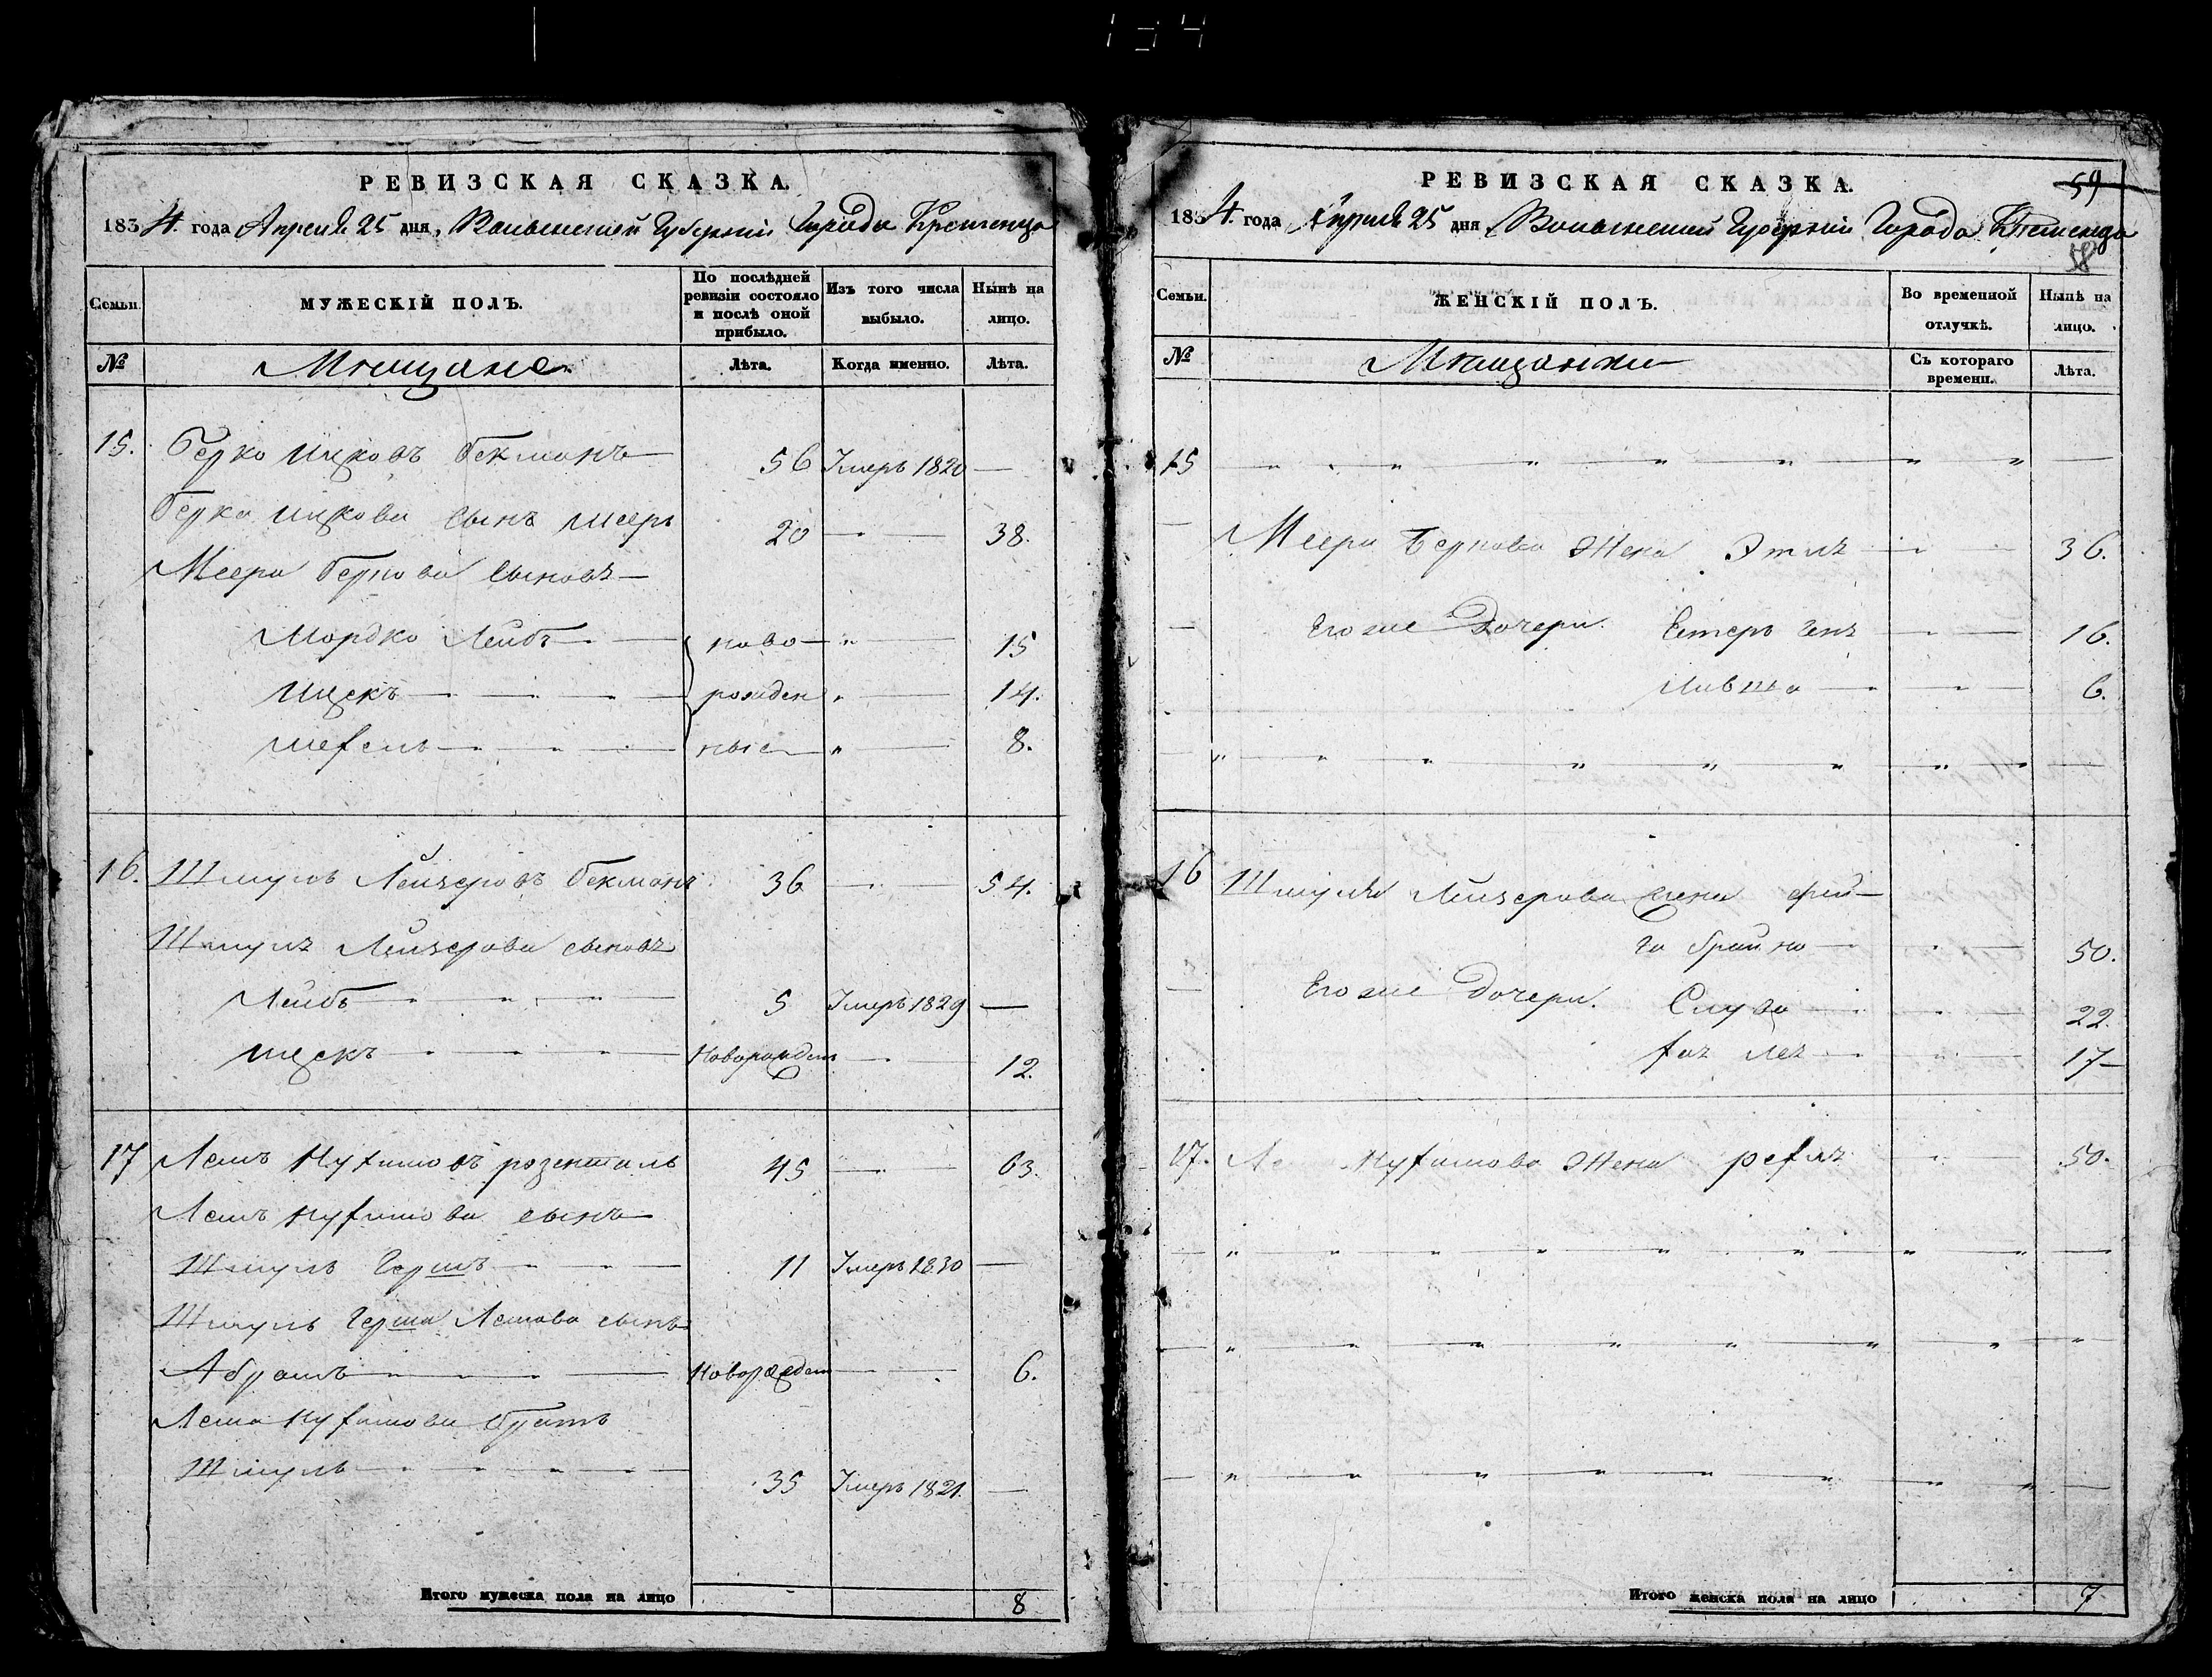 РЕВИЗСКАЯ СКАЗКА.
1834. года Апреля 25 дня, Волынской Губернiи Города Кременца
Семьи.
МУЖЕСКIЙ ПОЛЪ.
По послѣдней ревизiи состояло и послѣ оной прибыло.
Изъ того числа выбыло.
Нынѣ на лицо.
№
Мещане
Лѣта.
Когда именно.
Лѣта.
15. Берко Ицковъ Бекманъ 56 Умеръ 1820 —
Берка Ицкова сынъ Мееръ 20 — 38.
Меера Беркова сыновъ —
Мордко Лейбъ ново 15
Ицекъ рожден 14.
ные 8.
16. Шмуль Лейзеровъ Бекманъ 36 — 54.
Шмуля Лейзерова сыновъ
Лейбъ 5 Умеръ 1829 —
Ицекъ Новорожден 12.
17 розенталь 45 — 63.
сынъ
Шмуль Гершъ 11 Умеръ 1830 —
Шмуль Герша сынъ
Абрамъ Новорожден 6.
братъ
Шмуль 35 Умеръ 1821. —
Итого мужеска пола на лицо 8
РЕВИЗСКАЯ СКАЗКА.
59
1834. года Апреля 25 дня Волынской Губернiи Города Кременца
58
Семьи.
ЖЕНСКIЙ ПОЛЪ.
Во временной отлучкѣ.
Нынѣ на лицо.
№
Мещанки
Съ котораго времени.
Лѣта.
15
Меера Беркова жена Этля 36.
Его же дочери. Естеръ 16.
Ливша 6.
16 Шмуля Лейзерова жена фей-
га брайна 50.
Его же дочери. Слува 22.
17
17. жена 50.
Итого женска пола на лицо 7